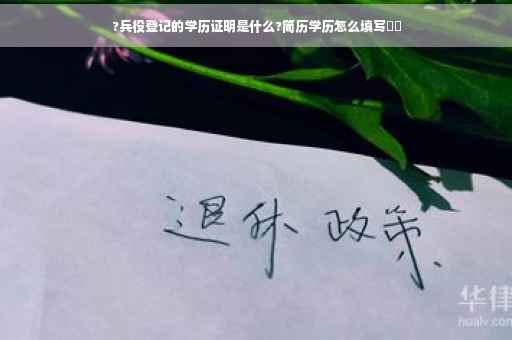 ?兵役登记的学历证明是什么?简历学历怎么填写
退休 政策
华律
hualv.com